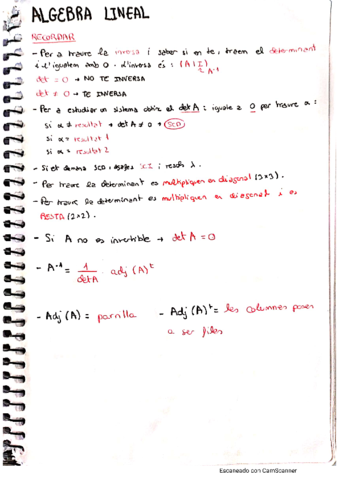 ALGEBRA LINEAL
RECORDAR
- Per a traure la inversa i saber si en te, traem el determinant
i l'igualem amb 0. L'inversa és: (A|I)
A⁻¹
det = 0 → NO TE INVERSA
det ≠ 0 → TE INVERSA
- Per a estudiar un sistema obtiz el det A i iguale a 0 per traure α:
Si α ≠ resultat → det A ≠ 0 → SCD
Si α = resultat 1
Si α = resultat 2
- Si et demana SCD, agafes SCI i resols λ.
- Per traure el determinant es multipliquen en diagonal (3x3).
- Per traure el determinant es multipliquen en diagonal i es
RESTA (2x2).
- Si A no es invertible → det A = 0
- A⁻¹ = 1/det A adj (A)ᵗ
- Adj (A) = parrilla - Adj (A)ᵗ = les columnes passen
a ser files
Escaneado con CamScanner